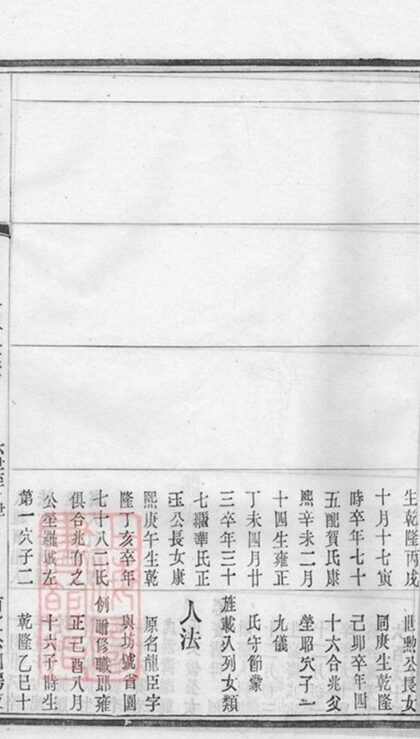 生乾隆丙戌
十月十七寅
時卒年七十
五配賀氏康
熙辛未二月
十四生雍正
丁未四月廿
三卒年三十
七繼華氏正
玉公長女康
熙庚午生乾
隆丁亥卒年
七十八二氏
俱合兆有之
公塋羅城左
第一穴子二
世勳公長女
同庚生乾隆
己卯卒年四
十六合兆父
塋昭穴子二
九儀
氏守節蒙
旌載入列女類
人法
原名龍臣字
與坊號省園
例贈修職郎雍
正己酉八月
十六子時生
乾隆乙巳十